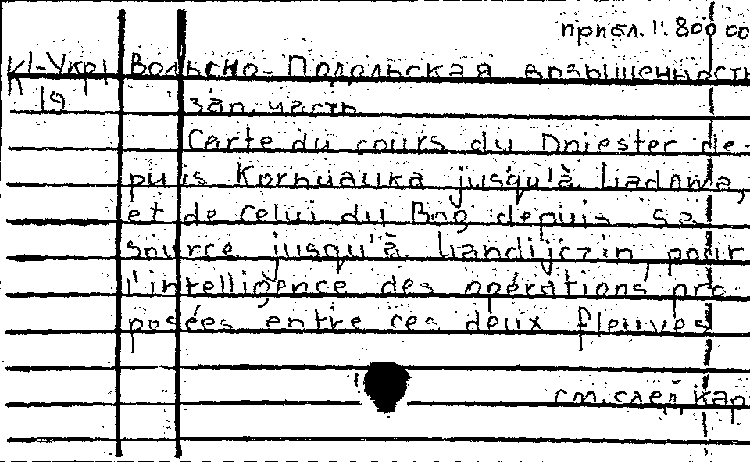 прибл. 1:800 00
К1-Укр1 Волыно-Подольская возвышенность
19 зап. часть
Carte du cours du Dniester de-
puis Korhuauka jusqu'à Liadowa,
et de celui du Bog depuis sa
source jusqu'à Landijczin, pour
l'intelligence des opérations pro-
posées entre ces deux fleuves
см. след. кар